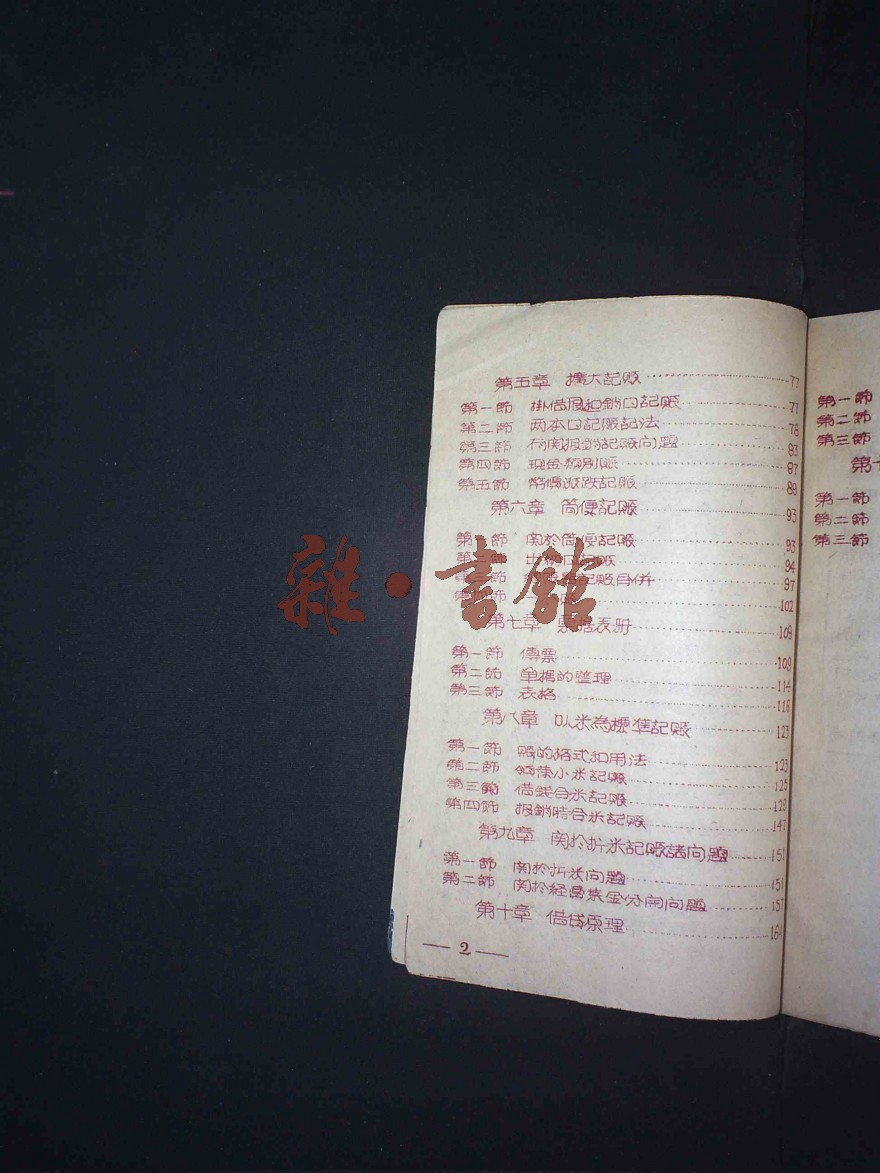 第五章 擴大記賬 77
第一節 掛借限和銷日記賬 77
第二節 两本日記賬記法 78
第三節 有関报銷記賬问題 83
第四節 现金類别賬 87
第五節 幣價涨跌記賬 88
第六章 简便記賬 93
第一節 関於简便記賬 93
第二節 日記賬 94
記賬合併 97
102
第七章 票据表册 109
第一節 傳票 109
第二節 单据的整理 114
第三節 表格 116
第八章 以米為標準記賬 123
第一節 賬的格式和用法 123
第二節 小米記賬 125
第三節 借錢合米記賬 129
第四節 报銷時合米記賬 147
第九章 関於折米記賬諸问題 151
第一節 関於折米问題 151
第二節 関於経費基金分開问題 157
第十章 借貸原理 164
— 2 —
第一節
第二節
第三節
第十
第一節
第二節
第三節
雜·書館